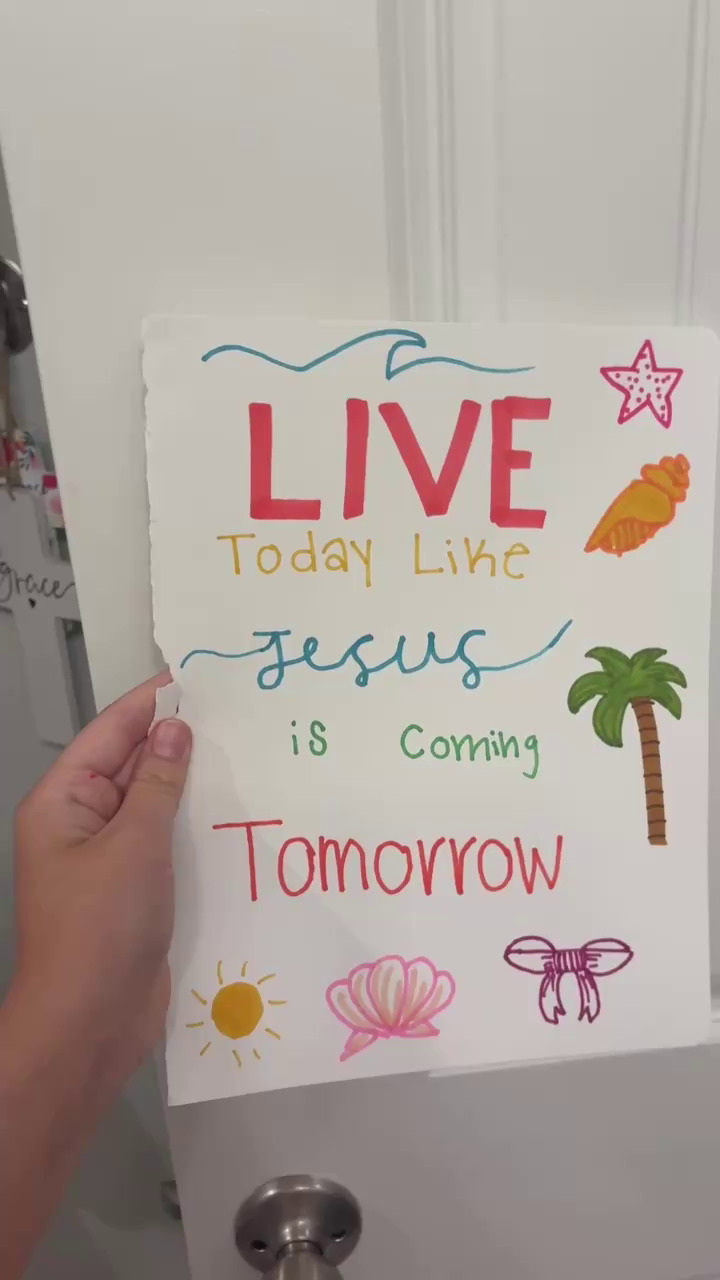 LIVE
Today Like
Jesus
is Coming
Tomorrow
grace